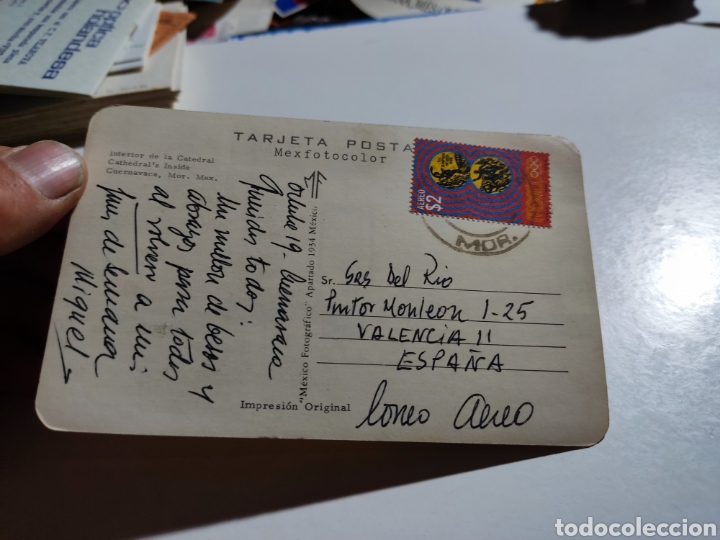 polica
holandesa
TARJETA POSTA
Mexfotocolor
Interior de la Catedral
Cathedral's Inside
Cuernavaca, Mor. Mex.
Octubre 19 - Cuernavaca
Queridos todos:
Un millon de besos y
abrazos para todos
al volver a mi
fines de semana
Miguel
"México Fotográfico" Apartado 1954 México
AEREO
$2
MOR.
Sr. Sas Del Rio
Pintor Monleon 1-25
VALENCIA 11
ESPAÑA
Correo Aereo
Impresión Original
todocoleccion